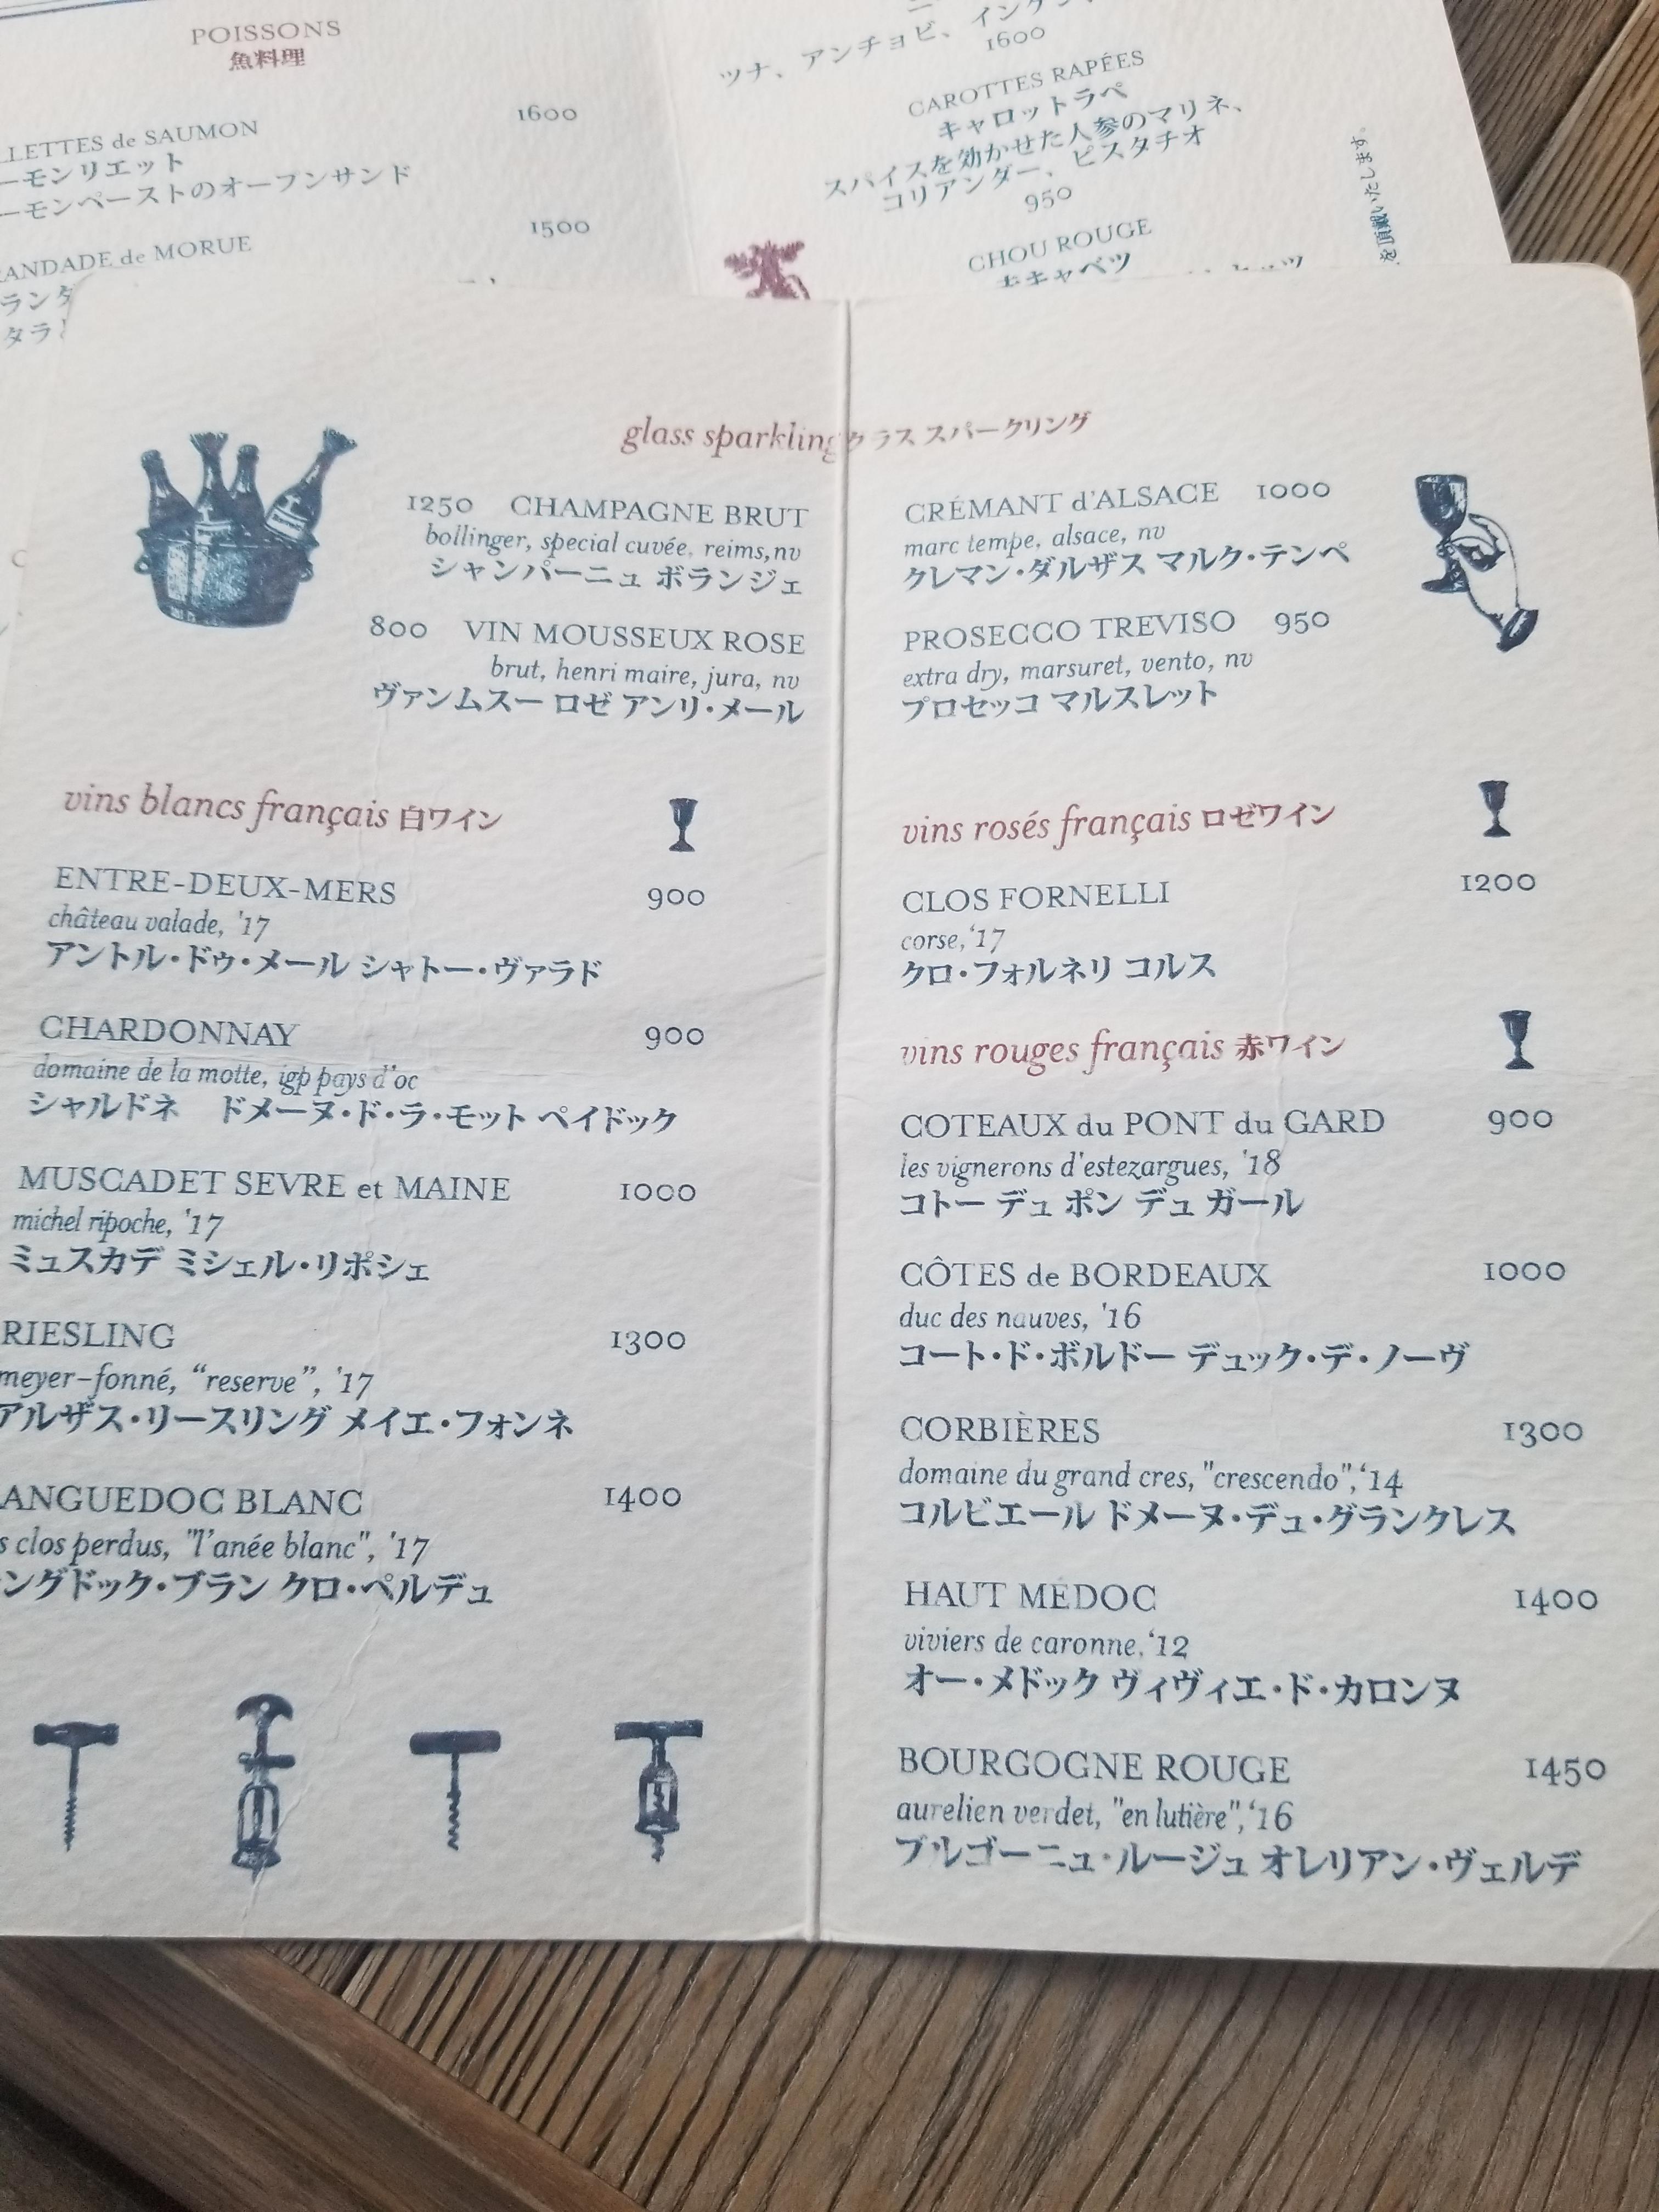 POISSONS
魚料理
1600
LLETTES de SAUMON
ーモンリエット
ーモンペーストのオープンサンド
1500
ANDADE de MORUE
ランダ
タラ
ツナ、アンチョビ、インゲン
1600
CAROTTES RAPÉES
キャロットラペ
スパイスを効かせた人参のマリネ、
コリアンダー、ピスタチオ
950
CHOU ROUGE
キャベツ
いたします。
glass sparkling グラス スパークリング
1250 CHAMPAGNE BRUT
bollinger, special cuvée, reims,nv
シャンパーニュ ボランジェ
800 VIN MOUSSEUX ROSE
brut, henri maire, jura, nv
ヴァンムスー ロゼ アンリ・メール
CRÉMANT d'ALSACE 1000
marc tempe, alsace, nv
クレマン・ダルザス マルク・テンペ
PROSECCO TREVISO 950
extra dry, marsuret, vento, nv
プロセッコ マルスレット
vins blancs français 白ワイン
ENTRE-DEUX-MERS 900
château valade, '17
アントル・ドゥ・メール シャトー・ヴァラド
CHARDONNAY 900
domaine de la motte, igp pays d'oc
シャルドネ ドメーヌ・ド・ラ・モット ペイドック
MUSCADET SEVRE et MAINE 1000
michel ripoche, '17
ミュスカデ ミシェル・リポシェ
RIESLING 1300
meyer-fonné, “reserve”, '17
アルザス・リースリング メイエ・フォンネ
ANGUEDOC BLANC 1400
s clos perdus, "l'anée blanc", '17
ングドック・ブラン クロ・ペルデュ
vins rosés français ロゼワイン
CLOS FORNELLI 1200
corse,‘17
クロ・フォルネリ コルス
vins rouges français 赤ワイン
COTEAUX du PONT du GARD 900
les vignerons d'estezargues, '18
コトー デュ ポン デュ ガール
CÔTES de BORDEAUX 1000
duc des nauves, '16
コート・ド・ボルドー デュック・デ・ノーヴ
CORBIÈRES 1300
domaine du grand cres, "crescendo",‘14
コルビエール ドメーヌ・デュ・グランクレス
HAUT MÉDOC 1400
viviers de caronne,‘12
オー・メドック ヴィヴィエ・ド・カロンヌ
BOURGOGNE ROUGE 1450
aurelien verdet, "en lutière",‘16
ブルゴーニュ・ルージュ オレリアン・ヴェルデ